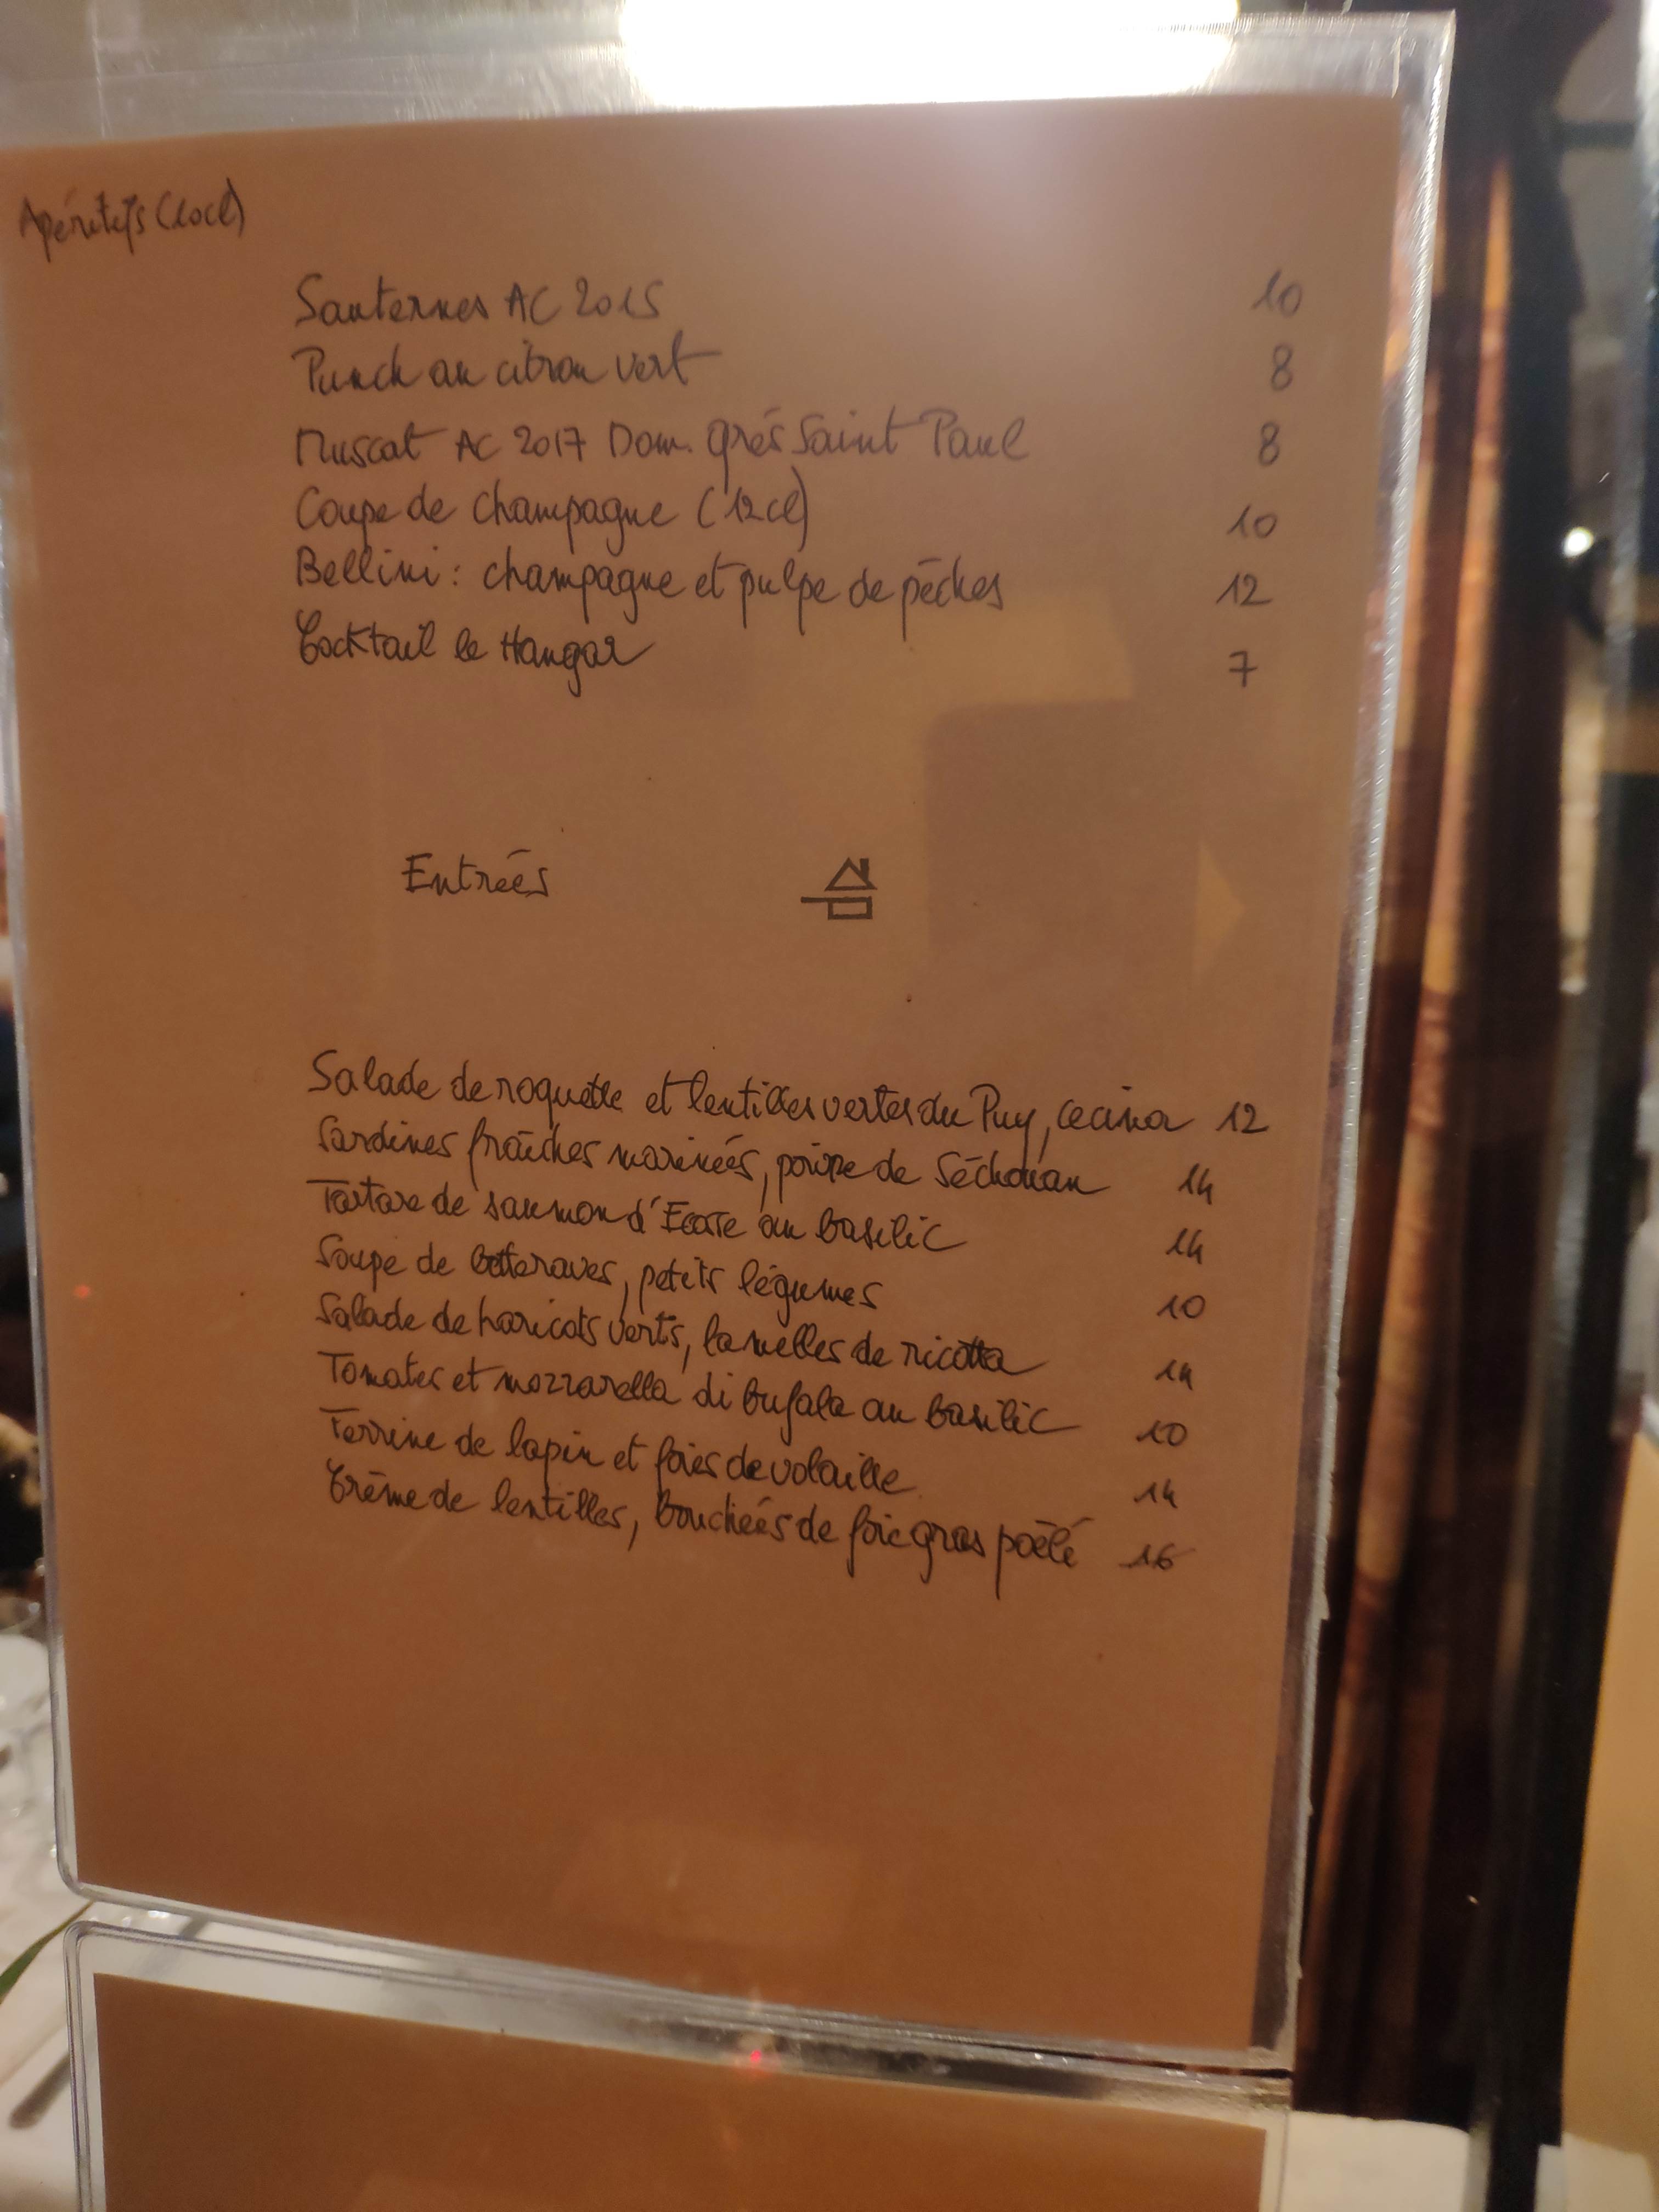 Apéritifs (10cl)
Sauternes AC 2015 10
Punch au citron vert 8
Muscat AC 2017 Dom. Grés Saint Paul 8
Coupe de champagne (12cl) 10
Bellini : champagne et pulpe de pêches 12
Cocktail le Hangar 7
Entrées
Salade de roquette et lentilles vertes du Puy, cecina 12
Sardines fraîches marinées, poivre de Séchouan 14
Tartare de saumon d'Ecosse au basilic 14
Soupe de betteraves, petits légumes 10
Salade de haricots verts, lamelles de ricotta 14
Tomates et mozzarella di bufala au basilic 10
Terrine de lapin et foies de volaille 14
Crème de lentilles, bouchées de foie gras poêlé 16